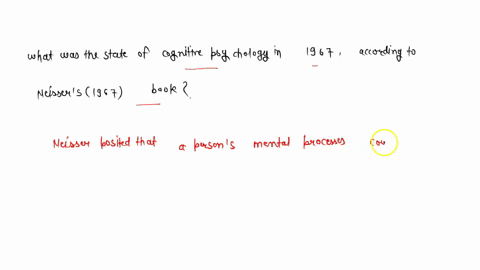 what was the state of cognitive psychology in 1967, according to
Neisser's (1967) book?
Neisser posited that a person's mental processes cou